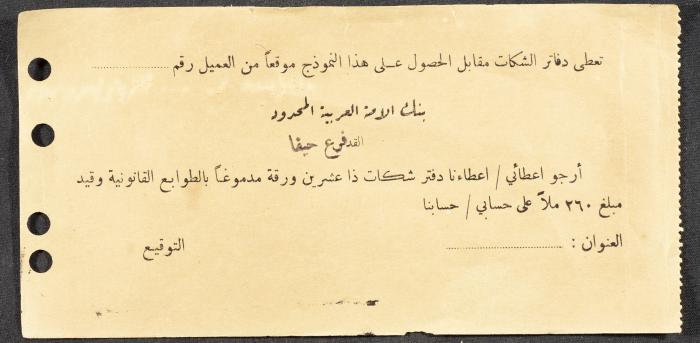 تعطى دفاتر الشكات مقابل الحصول على هذا النموذج موقعاً من العميل رقم ....................
بنك الامة العربية المحدود
القد فرع حيفا
أرجو اعطائي / اعطاءنا دفتر شكات ذا عشرين ورقة مدموغاً بالطوابع القانونية وقيد
مبلغ ٢٦٠ ملاً على حسابي / حسابنا
العنوان : ..............................
التوقيع